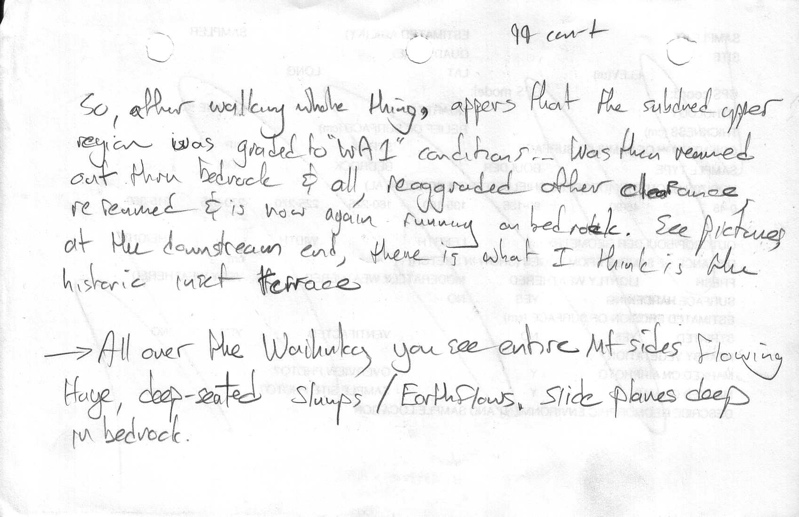 99 con-t
So, after walking whole thing, appers that the subdued upper
region was graded to "WA1" conditions... Was then reamed
out thru bedrock & all reaggraded after clearance,
rereamed & is now again running on bedrock. See pictures,
at the downstream end, there is what I think is the
historic inset terrace
→ All over the you see entire Mt sides flowing
Huge, deep-seated slumps / Earthflows. Slide planes deep
in bedrock.